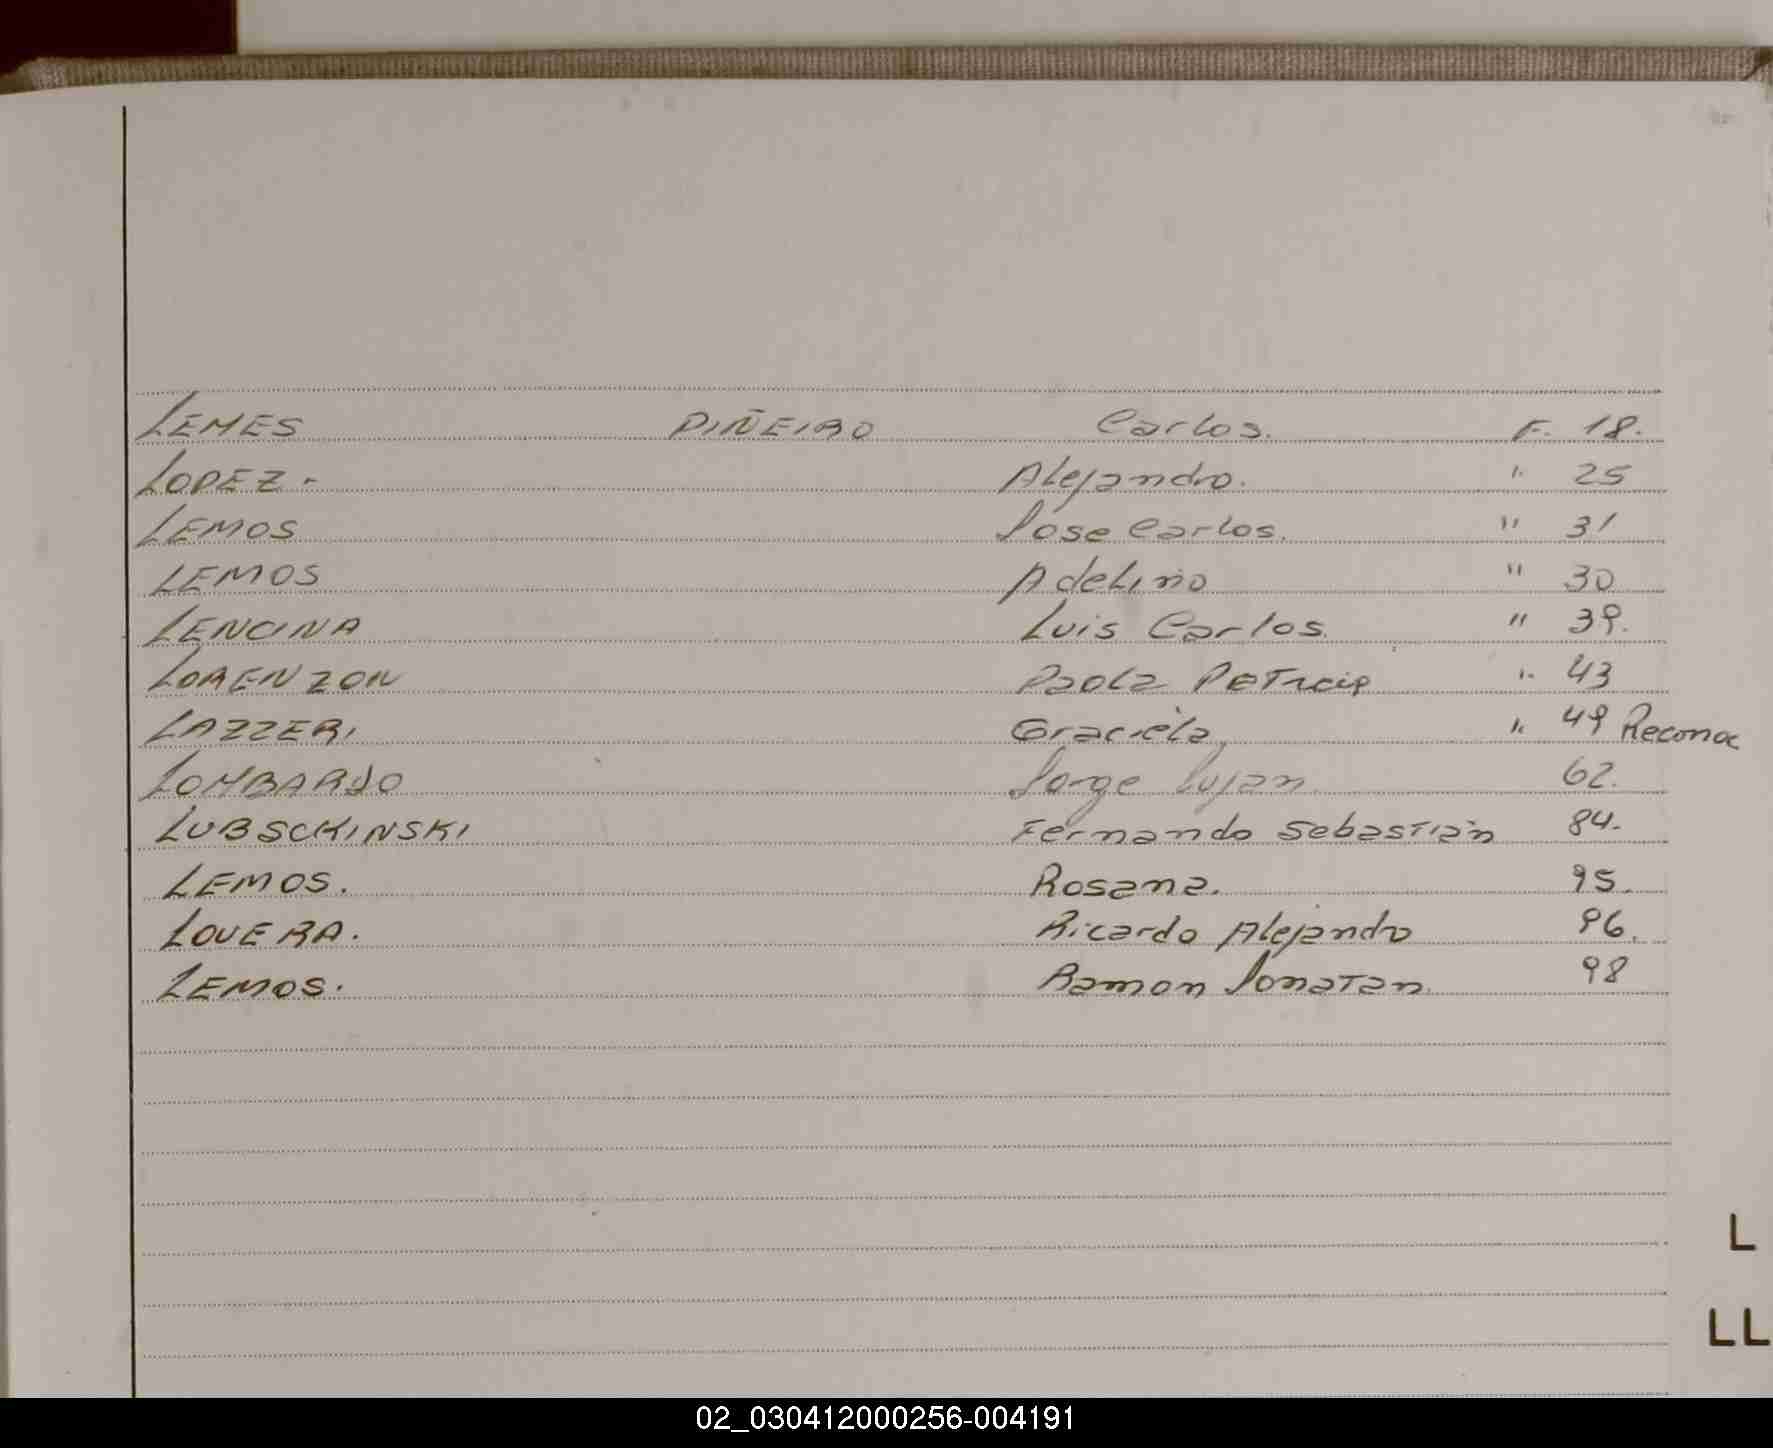 LEMES PIÑEIRO Carlos. F. 18.
LOPEZ - Alejandro. " 25
LEMOS Jose Carlos. " 31
LEMOS Adelino " 30
LENCINA Luis Carlos. " 39.
LORENZON Paola Patricia " 43
LAZZERI Graciela " 49 Reconoc
LOMBARDO Jorge Lujan. 62.
LUBSCKINSKI Fernando Sebastián 84.
LEMOS. Rosana. 95.
LOVERA. Ricardo Alejandro 96.
LEMOS. Ramon Jonatan. 98
L
LL
02_030412000256-004191